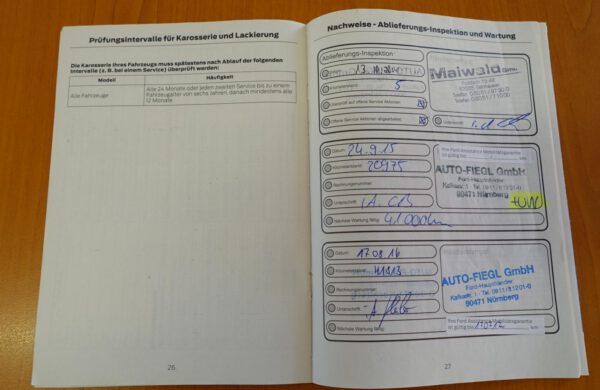 Prüfungsintervalle für Karosserie und Lackierung
Die Karosserie Ihres Fahrzeugs muss spätestens nach Ablauf der folgenden
Intervalle (z. B. bei einem Service) überprüft werden:
Modell Häufigkeit
Alle Fahrzeuge
Alle 24 Monate oder jeden zweiten Service bis zu einem
Fahrzeugalter von sechs Jahren, danach mindestens alle
12 Monate.
26
Nachweise - Ablieferungs-Inspektion und Wartung
Ablieferungs-Inspektion
13.10.2014
Kilometerstand: 5
Überprüft auf offene Service Aktionen
Offene Service Aktionen abgearbeitet
Unterschrift:
Maiwald GmbH
Datum: 24.9.15
Kilometerstand: 20975
Rechnungsnummer:
Unterschrift:
Nächste Wartung fällig: 41000km
Ihre Ford Assistance Mobilitätsgarantie
ist gültig bis
km
AUTO-FIEGL GmbH
Ford-Haupthändler
90471 Nürnberg
Datum: 17.08.16
Kilometerstand: 41313
Rechnungsnummer:
Unterschrift:
Nächste Wartung fällig:
AUTO-FIEGL GmbH
Ford-Haupthändler
90471 Nürnberg
Ihre Ford Assistance Mobilitätsgarantie
ist gültig bis
km
27